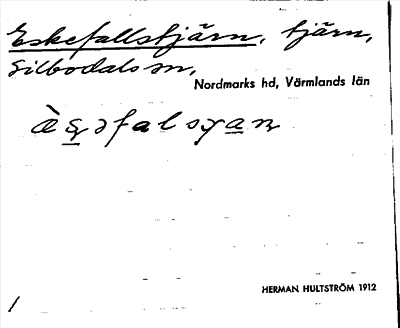 Eskefallstjärn, tjärn,
Silbodals sn,
Nordmarks hd, Värmlands län
HERMAN HULTSTRÖM 1912